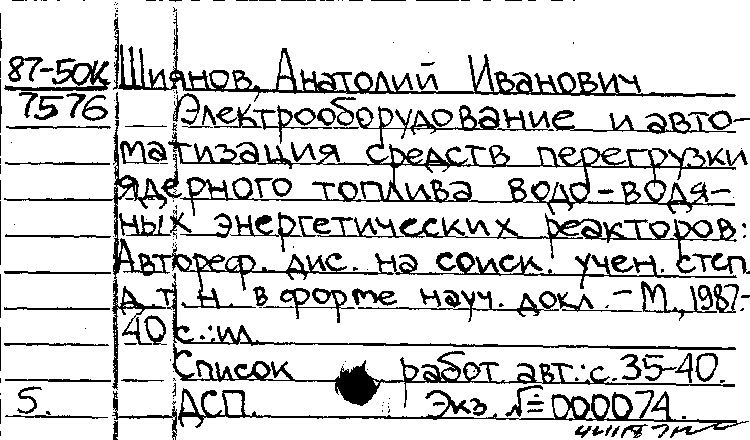 87-50К Шиянов, Анатолий Иванович
7576 Электрооборудование и авто-
матизация средств перегрузки
ядерного топлива водо-водя-
ных энергетических реакторов:
Автореф. дис. на соиск. учен. степ
д.т.н. в форме науч. докл. - М., 1987.-
40 с.: ил.
Список работ авт.: с. 35-40.
5. ДСП. Экз. №=000074.